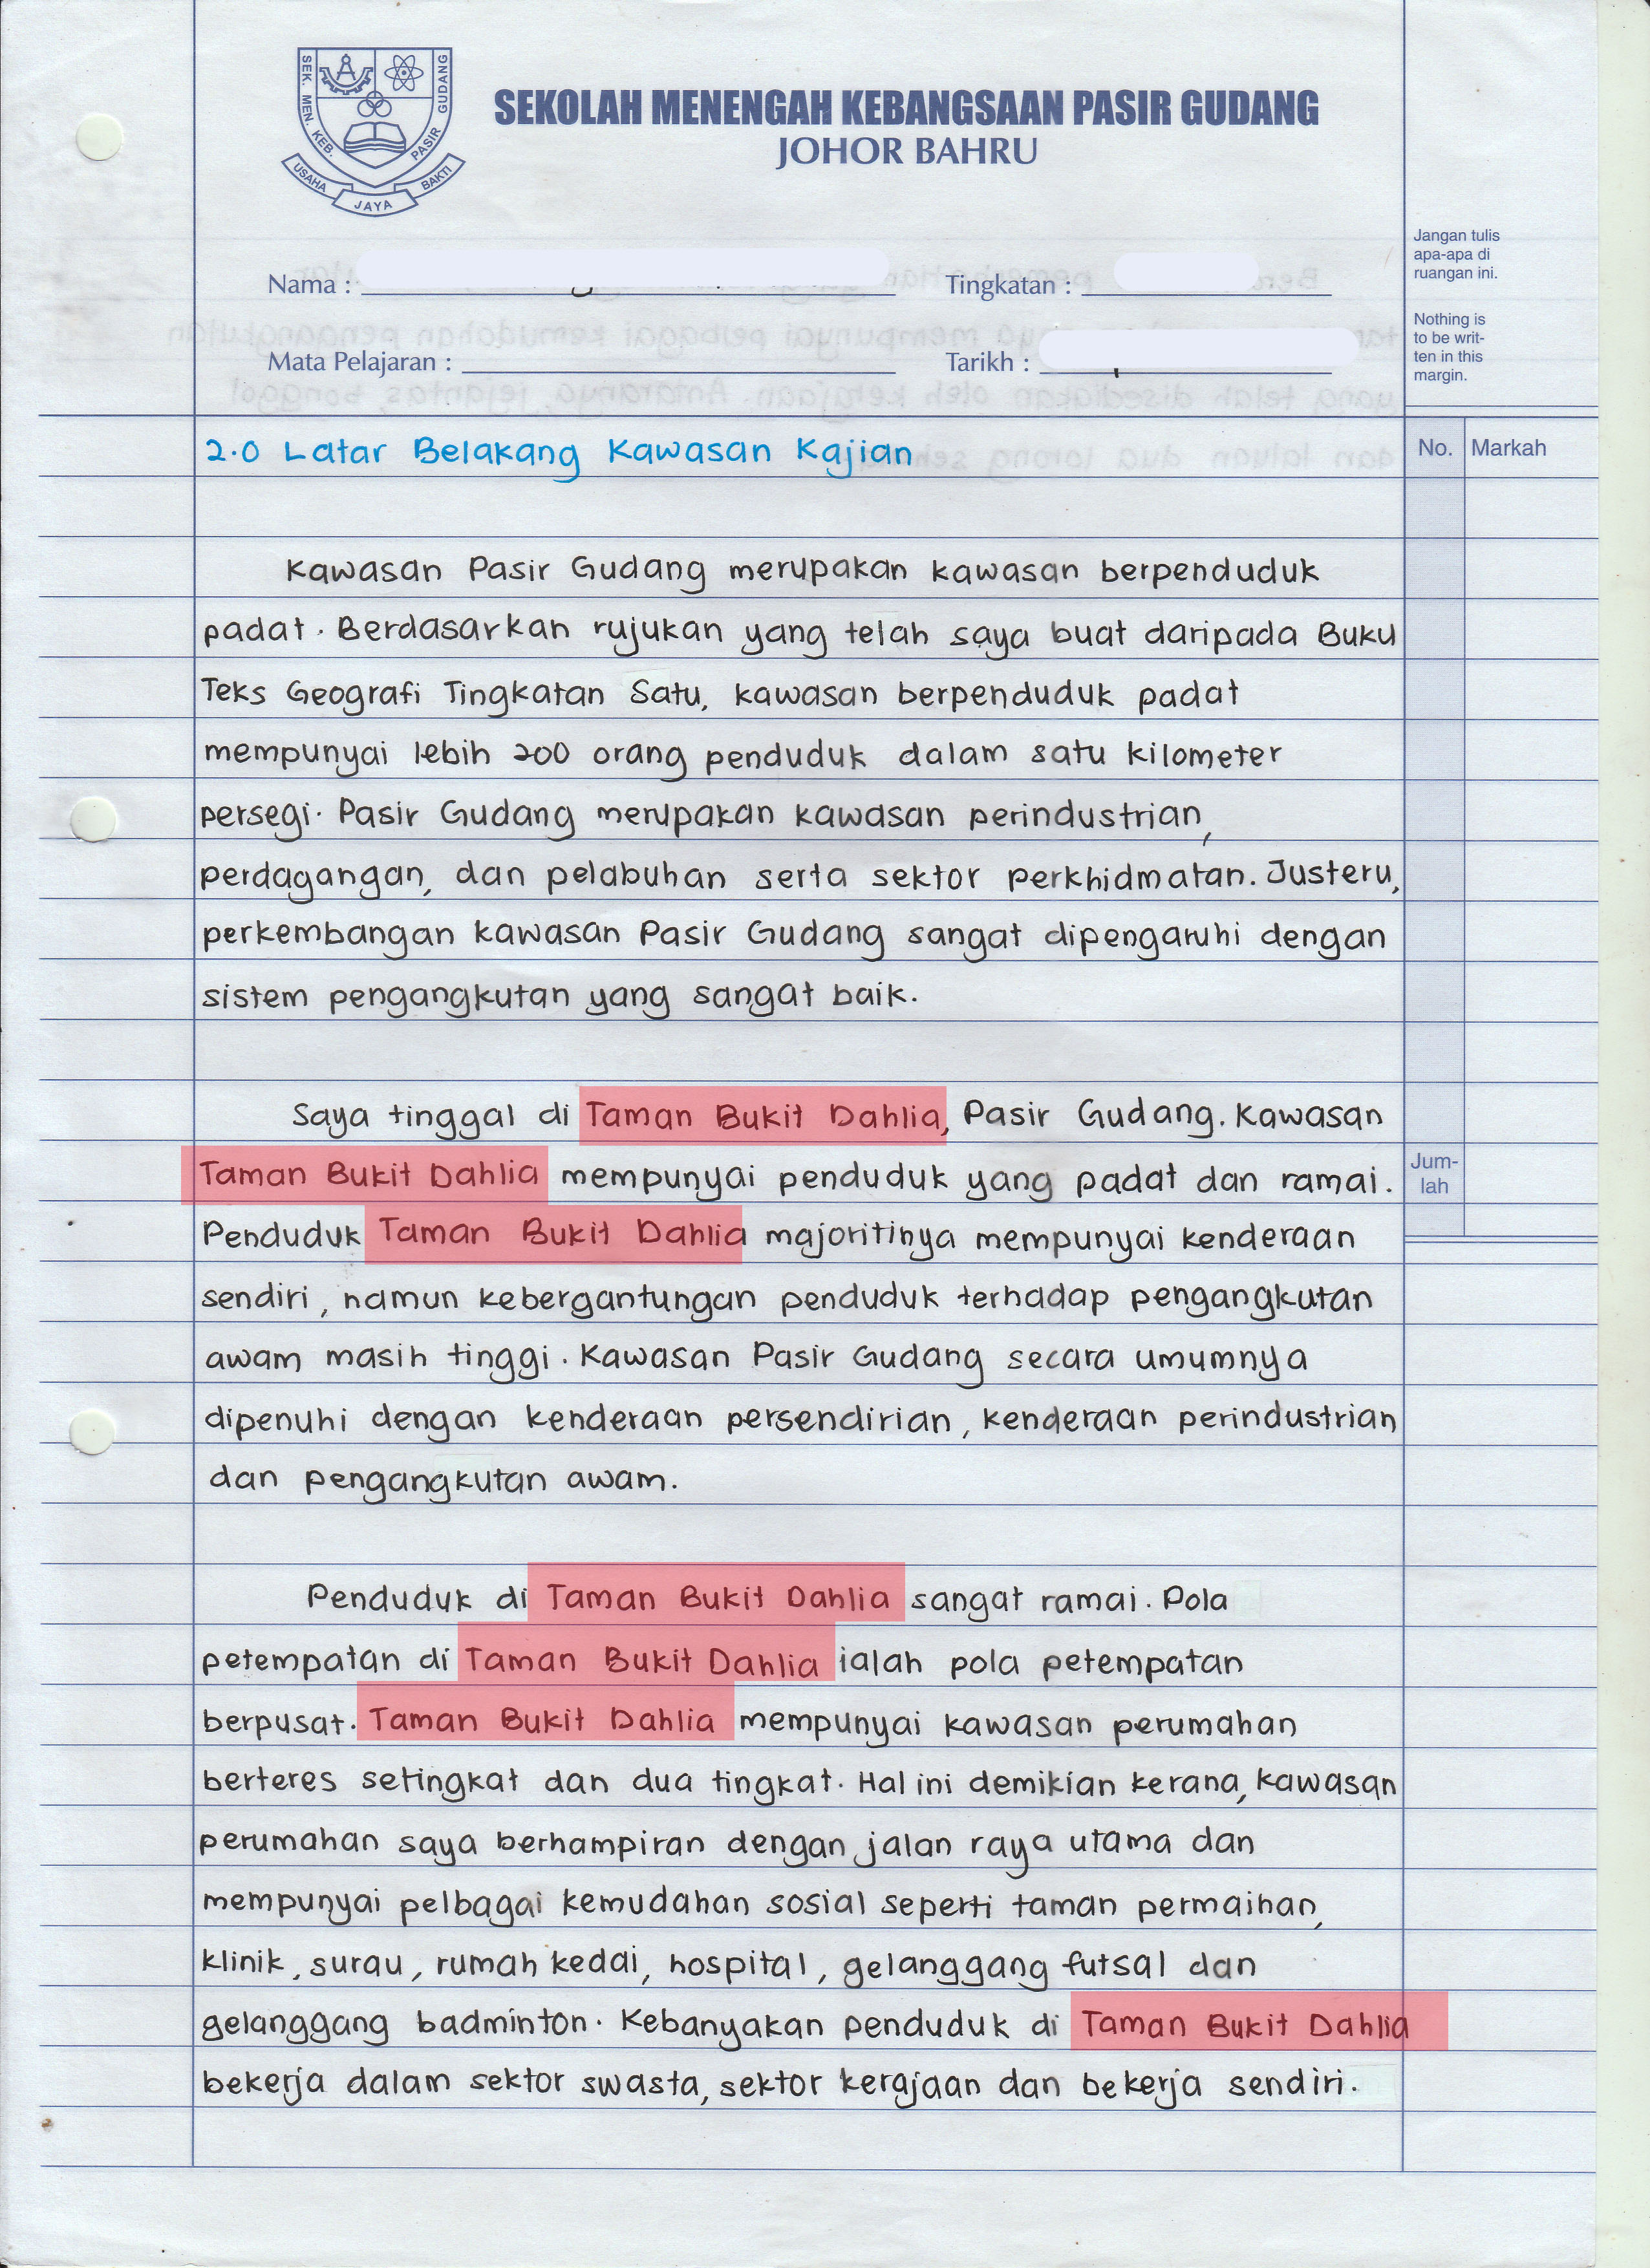 SEK. MEN. KEB. PASIR GUDANG
USAHA JAYA BAKTI
SEKOLAH MENENGAH KEBANGSAAN PASIR GUDANG
JOHOR BAHRU
Jangan tulis
apa-apa di
ruangan ini.
Nama :
Tingkatan :
Nothing is
to be writ-
ten in this
margin.
Mata Pelajaran :
Tarikh :
2.0 Latar Belakang Kawasan Kajian
No. Markah
Kawasan Pasir Gudang merupakan kawasan berpenduduk
padat. Berdasarkan rujukan yang telah saya buat daripada Buku
Teks Geografi Tingkatan Satu, kawasan berpenduduk padat
mempunyai lebih 200 orang penduduk dalam satu kilometer
persegi. Pasir Gudang merupakan kawasan perindustrian,
perdagangan, dan pelabuhan serta sektor perkhidmatan. Justeru,
perkembangan kawasan Pasir Gudang sangat dipengaruhi dengan
sistem pengangkutan yang sangat baik.
Saya tinggal di Taman Bukit Dahlia, Pasir Gudang. Kawasan
Taman Bukit Dahlia mempunyai penduduk yang padat dan ramai.
Jum-
lah
Penduduk Taman Bukit Dahlia majoritinya mempunyai kenderaan
sendiri, namun kebergantungan penduduk terhadap pengangkutan
awam masih tinggi. Kawasan Pasir Gudang secara umumnya
dipenuhi dengan kenderaan persendirian, kenderaan perindustrian
dan pengangkutan awam.
Penduduk di Taman Bukit Dahlia sangat ramai. Pola
petempatan di Taman Bukit Dahlia ialah pola petempatan
berpusat. Taman Bukit Dahlia mempunyai kawasan perumahan
berteres setingkat dan dua tingkat. Hal ini demikian kerana, kawasan
perumahan saya berhampiran dengan jalan raya utama dan
mempunyai pelbagai kemudahan sosial seperti taman permainan,
klinik, surau, rumah kedai, hospital, gelanggang futsal dan
gelanggang badminton. Kebanyakan penduduk di Taman Bukit Dahlia
bekerja dalam sektor swasta, sektor kerajaan dan bekerja sendiri.